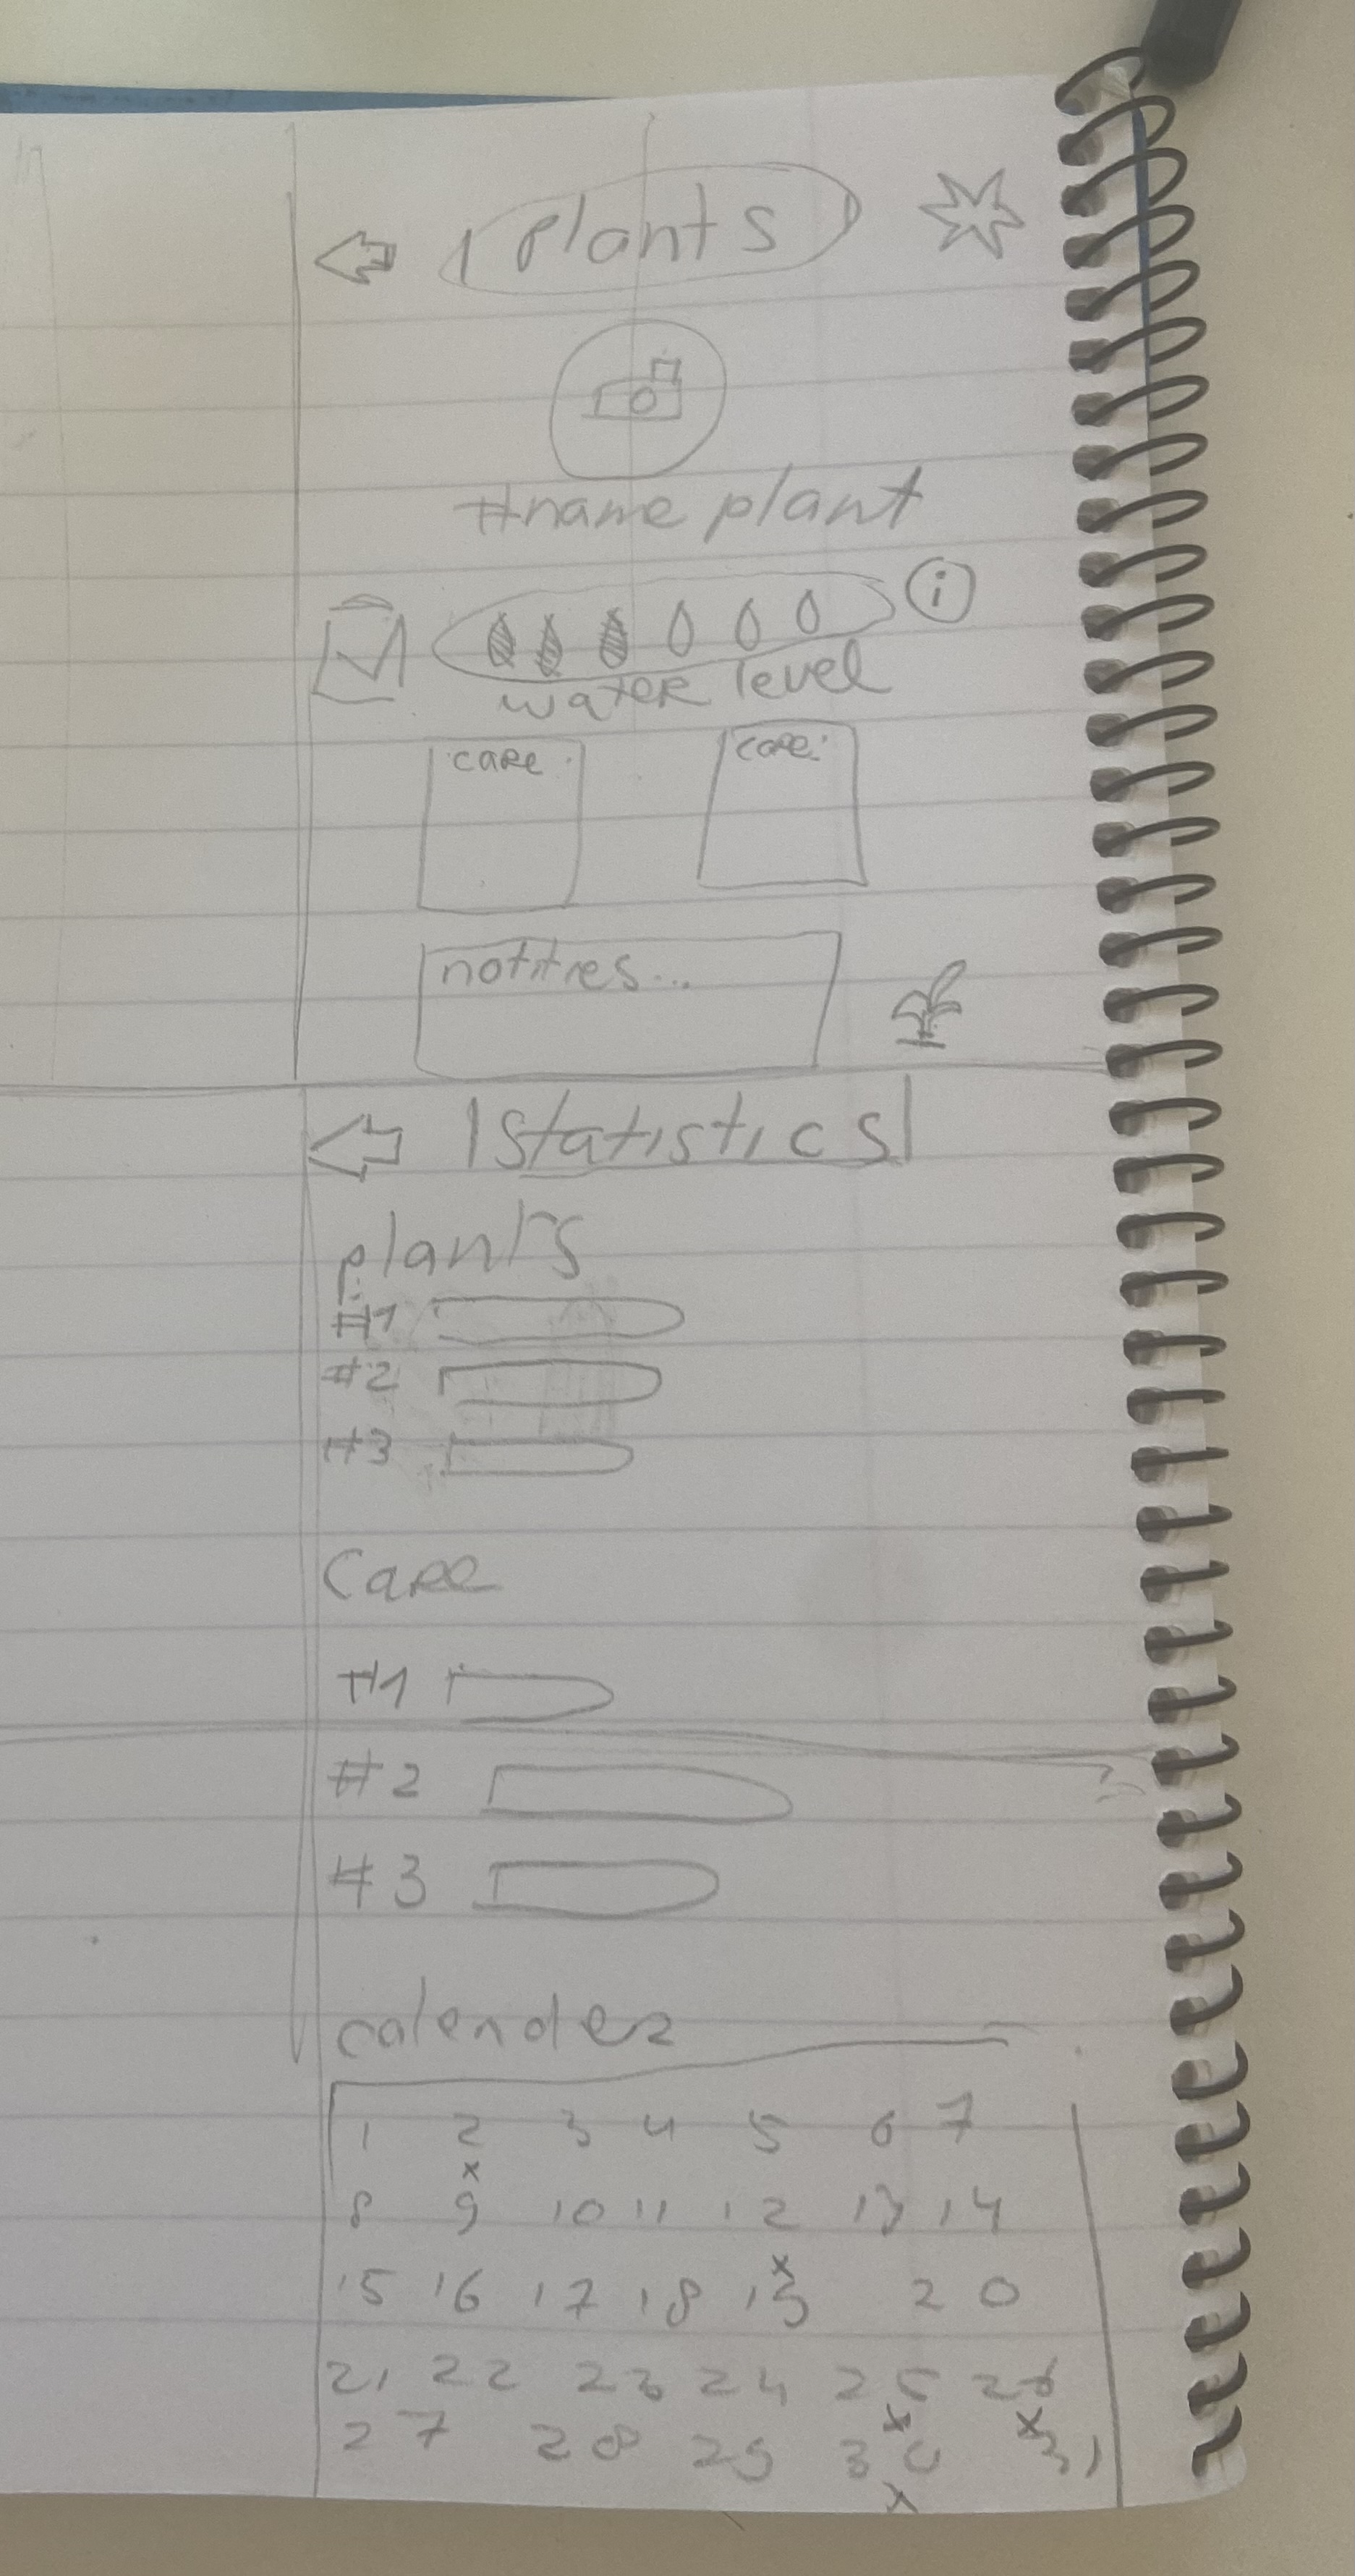 Plants
#name plant
i
water level
care
care:
notities...
Statistics
plants
#1
#2
#3
Care
#1
#2
#3
calender
1 2 3 4 5 6 7
x
8 9 10 11 12 13 14
x
15 16 17 18 19 20
21 22 23 24 25 26
x x
27 28 29 30 31
x